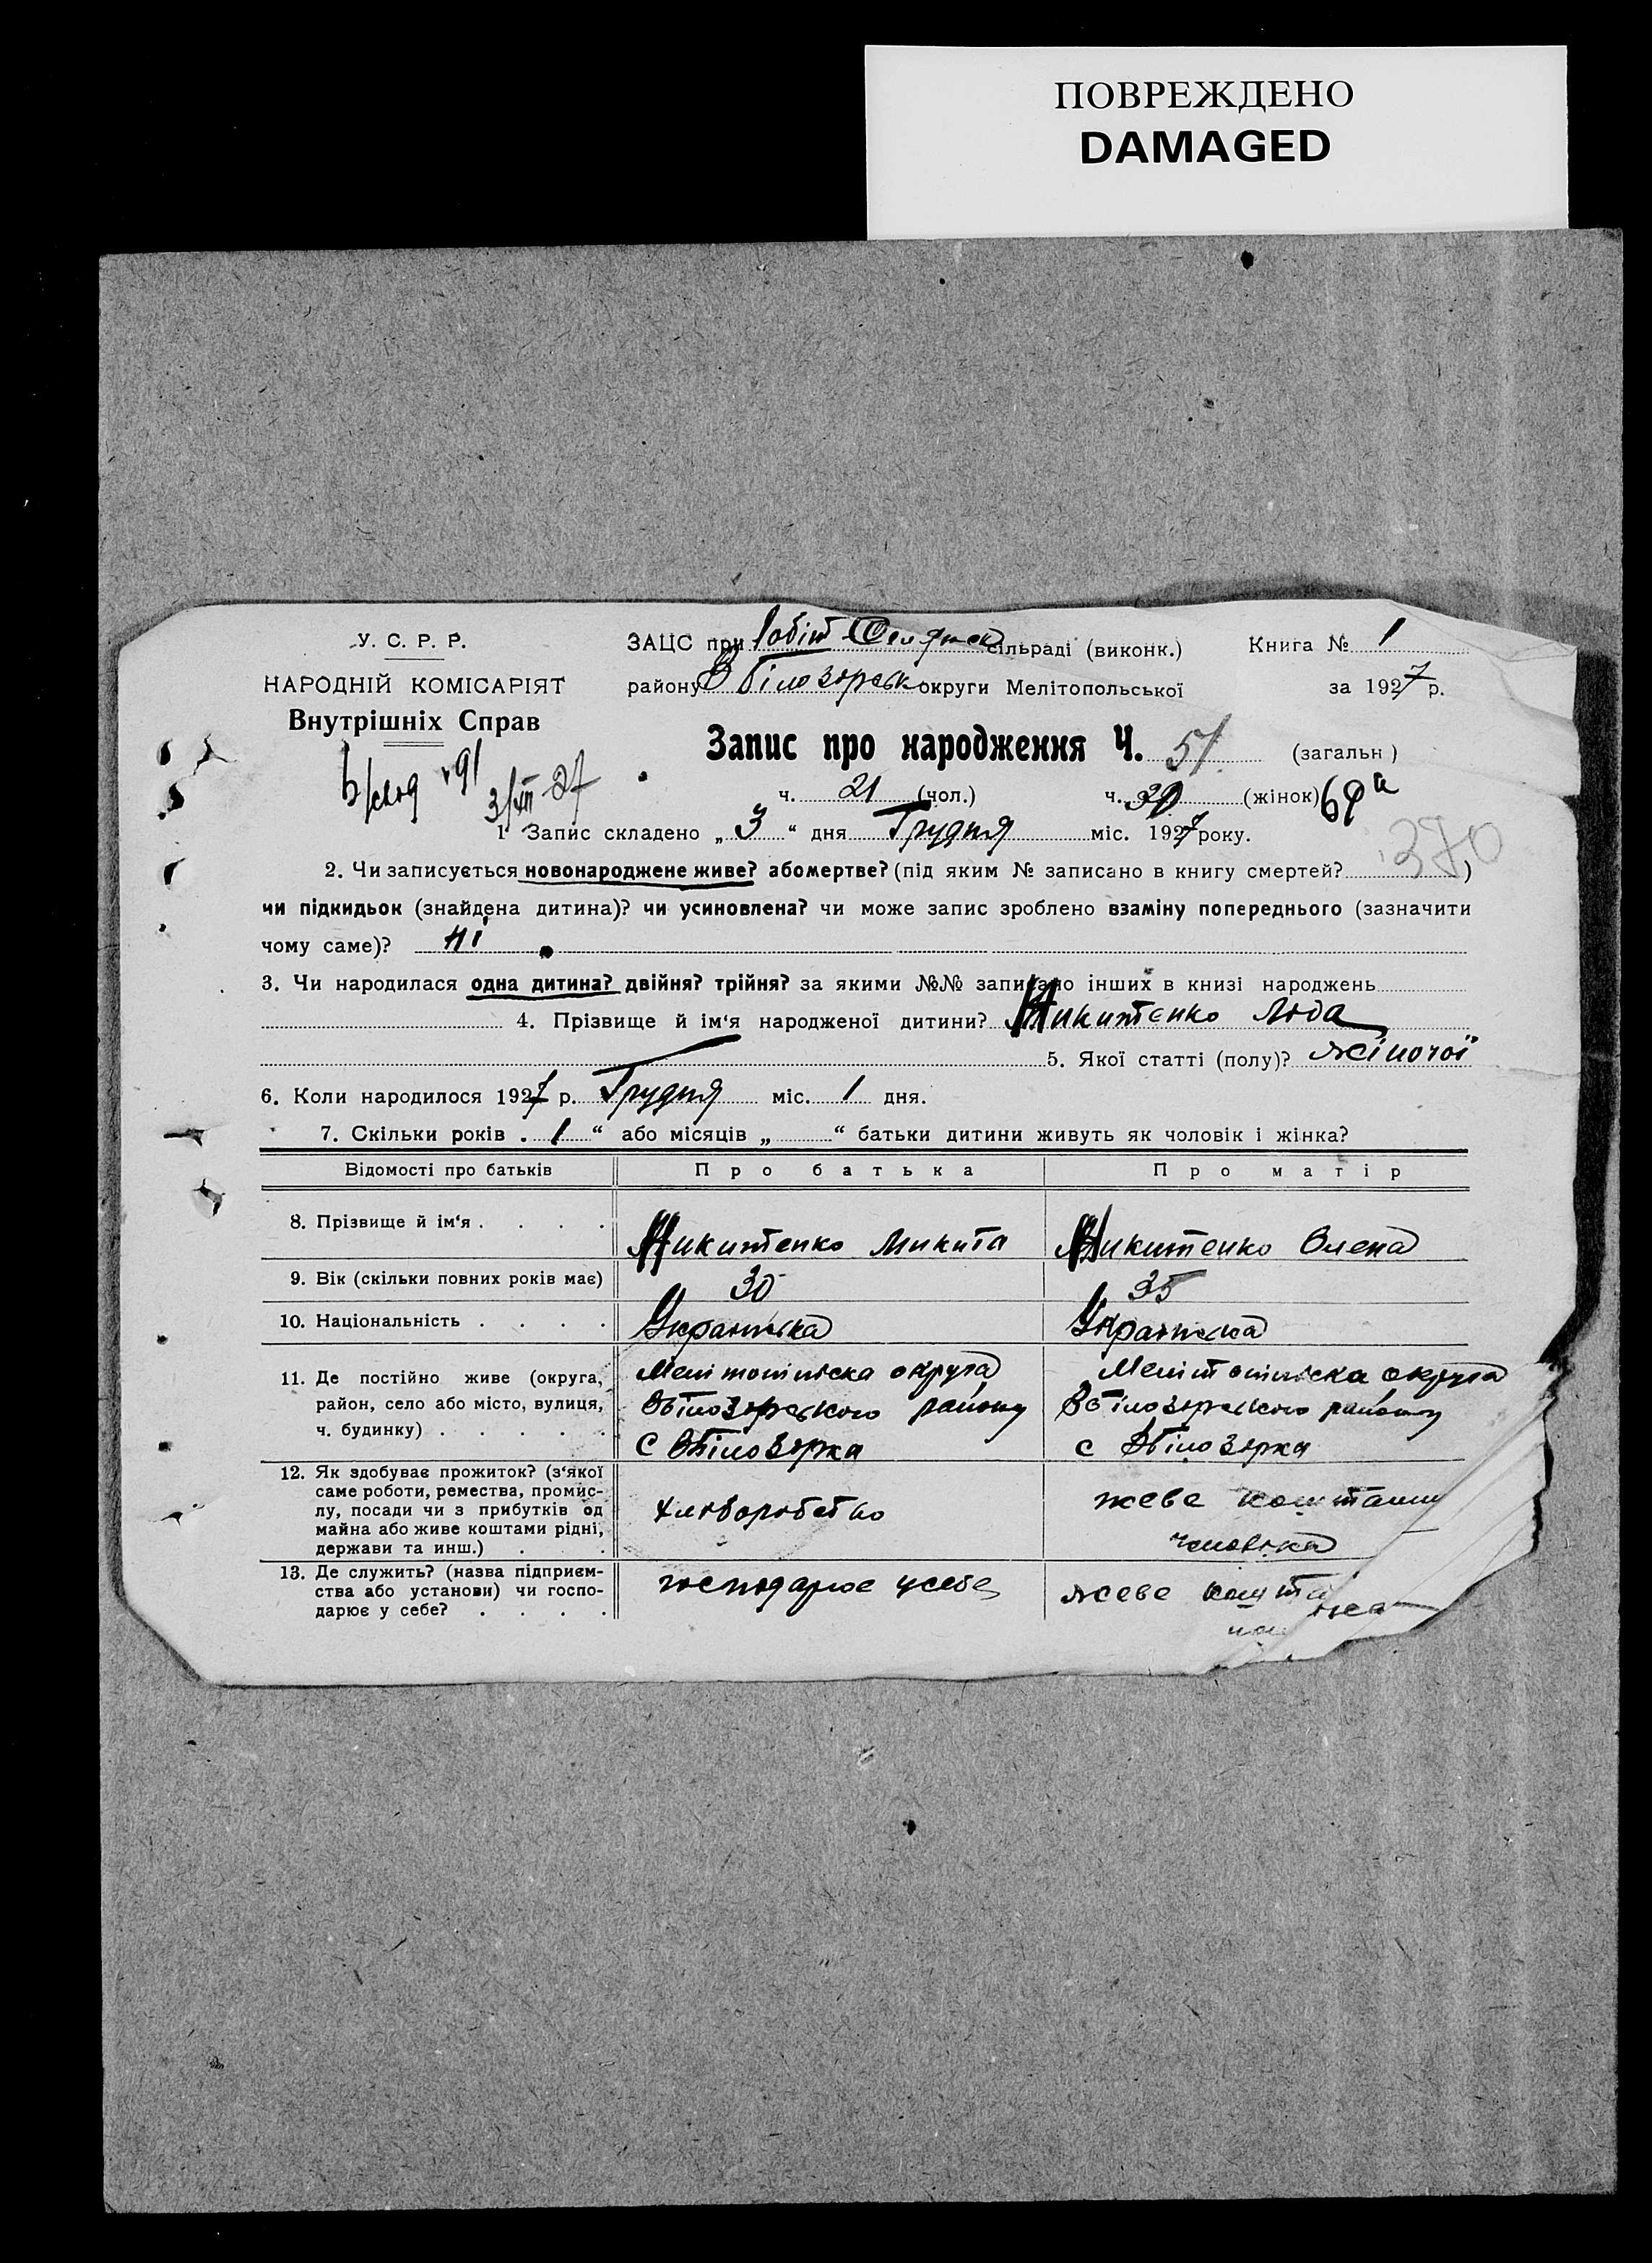 ПОВРЕЖДЕНО
DAMAGED
У. С. Р. Р.
НАРОДНІЙ КОМІСАРІЯТ
Внутрішніх Справ
ЗАЦС при Робіт Селянськ сільраді (виконк.)
району В Білозорськ округи Мелітопольської
Книга № 1
за 1927 р.
Запис про народження Ч. 51 (загальн)
3/XII-27
ч. 21 (чол.) ч. 30 (жінок)
1 Запис складено „ 3 “ дня Грудня міс. 1927 року.
370
2. Чи записується новонароджене живе? або мертве? (під яким № записано в книгу смертей? )
чи підкидьок (знайдена дитина)? чи усиновлена? чи може запис зроблено взаміну попереднього (зазначити
чому саме)? ні
3. Чи народилася одна дитина? двійня? трійня? за якими №№ записано інших в книзі народжень
4. Прізвище й ім‘я народженої дитини? Микитенко Люба
5. Якої статті (полу)? жіночої
6. Коли народилося 1927 р. Грудня міс. 1 дня.
7. Скільки років „ 1 “ або місяців „ “ батьки дитини живуть як чоловік і жінка?
Відомості про батьків Про батька Про матір
8. Прізвище й ім‘я . . . . Микитенко Микита Микитенко Олена
9. Вік (скільки повних років має) 30 35
10. Національність . . . . Українська Українська
11. Де постійно живе (округа,
район, село або місто, вулиця,
ч. будинку) . . . . .
Мелітопільска округа
Вбілозорського району
с Вбілозорка
Мелітопільска округа
Вбілозорського району
с Вбілозорка
12. Як здобуває прожиток? (з‘якої
саме роботи, ремества, промис-
лу, посади чи з прибутків од
майна або живе коштами рідні,
держави та инш.) . .
хліборобство
жеве коштами
чоловіка
13. Де служить? (назва підприєм-
ства або установи) чи госпо-
дарює у себе? . . . .
господарює усебе
жеве кошта